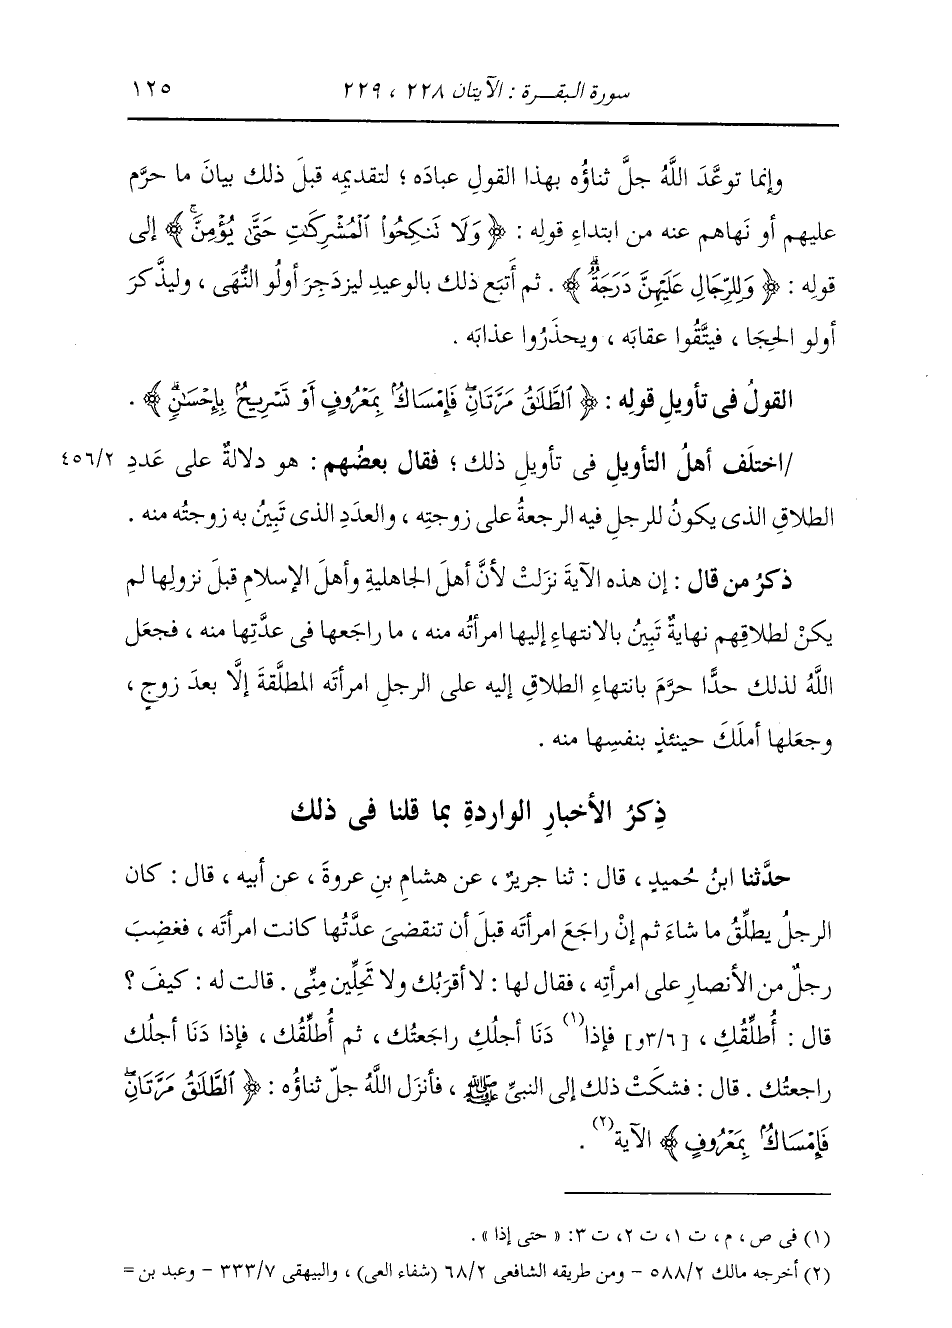 سورة البقـرة : الآيتان ٢٢٨ ، ٢٢٩ ١٢٥
وإنما توعَّدَ اللَّهُ جلَّ ثناؤُه بهذا القولِ عبادَه ؛ لتقديمِه قبلَ ذلك بيانَ ما حرَّم
عليهم أو نَهاهم عنه من ابتداءِ قولِه : ﴿ وَلَا تَنكِحُوا۟ ٱلْمُشْرِكَٰتِ حَتَّىٰ يُؤْمِنَّۚ ﴾ إلى
قولِه : ﴿ وَلِلرِّجَالِ عَلَيْهِنَّ دَرَجَةٌۗ ﴾ . ثم أَتبَع ذلك بالوعيدِ ليزدَجِرَ أولُو النُّهَى ، وليذَّكرَ
أولو الحِجَا ، فيتَّقُوا عقابَه ، ويحذَرُوا عذابَه .
القولُ فى تأويلِ قولِه : ﴿ ٱلطَّلَٰقُ مَرَّتَانِۖ فَإِمْسَاكٌۢ بِمَعْرُوفٍ أَوْ تَسْرِيحٌۢ بِإِحْسَٰنٍۗ ﴾ .
/اختلَف أهلُ التأويلِ فى تأويلِ ذلك ؛ فقال بعضُهم : هو دلالةٌ على عَددِ ٤٥٦/٢
الطلاقِ الذى يكونُ للرجلِ فيه الرجعةُ على زوجتِه ، والعدَدِ الذى تَبِينُ به زوجتُه منه .
ذكرُ من قال : إن هذه الآيةَ نزَلتْ لأنَّ أهلَ الجاهليةِ وأهلَ الإسلامِ قبلَ نزولِها لم
يكنْ لطلاقِهم نهايةٌ تَبِينُ بالانتهاءِ إليها امرأتُه منه ، ما راجَعها فى عدَّتِها منه ، فجعَل
اللَّهُ لذلك حدًّا حرَّمَ بانتهاءِ الطلاقِ إليه على الرجلِ امرأتَه المطلَّقةَ إلَّا بعدَ زوجٍ ،
وجعَلها أملَكَ حينئذٍ بنفسِها منه .
ذِكرُ الأخبارِ الواردةِ بما قلنا فى ذلك
حدَّثنا ابنُ حُميدٍ ، قال : ثنا جريرٌ ، عن هشامِ بنِ عروةَ ، عن أبيه ، قال : كان
الرجلُ يطلِّقُ ما شاءَ ثم إنْ راجَعَ امرأتَه قبلَ أن تنقضىَ عدَّتُها كانت امرأتَه ، فغضِبَ
رجلٌ من الأنصارِ على امرأتِه ، فقال لها : لا أقرَبُك ولا تَحِلِّين مِنِّى . قالت له : كيفَ ؟
قال : أُطلِّقُكِ ، [٣/٦و] فإذا(١) دَنَا أجلُكِ راجَعتُك ، ثم أُطلِّقُك ، فإذا دَنَا أجلُك
راجعتُك . قال : فشكَتْ ذلك إلى النبىِّ ﷺ ، فأنزَل اللَّهُ جلّ ثناؤُه : ﴿ ٱلطَّلَٰقُ مَرَّتَانِۖ
فَإِمْسَاكٌۢ بِمَعْرُوفٍ ﴾ الآيةَ(٢) .
(١) فى ص ، م ، ت ١، ت ٢، ت ٣: « حتى إذا » .
(٢) أخرجه مالك ٥٨٨/٢ – ومن طريقه الشافعى ٦٨/٢ (شفاء العى) ، والبيهقى ٣٣٣/٧ – وعبد بن =